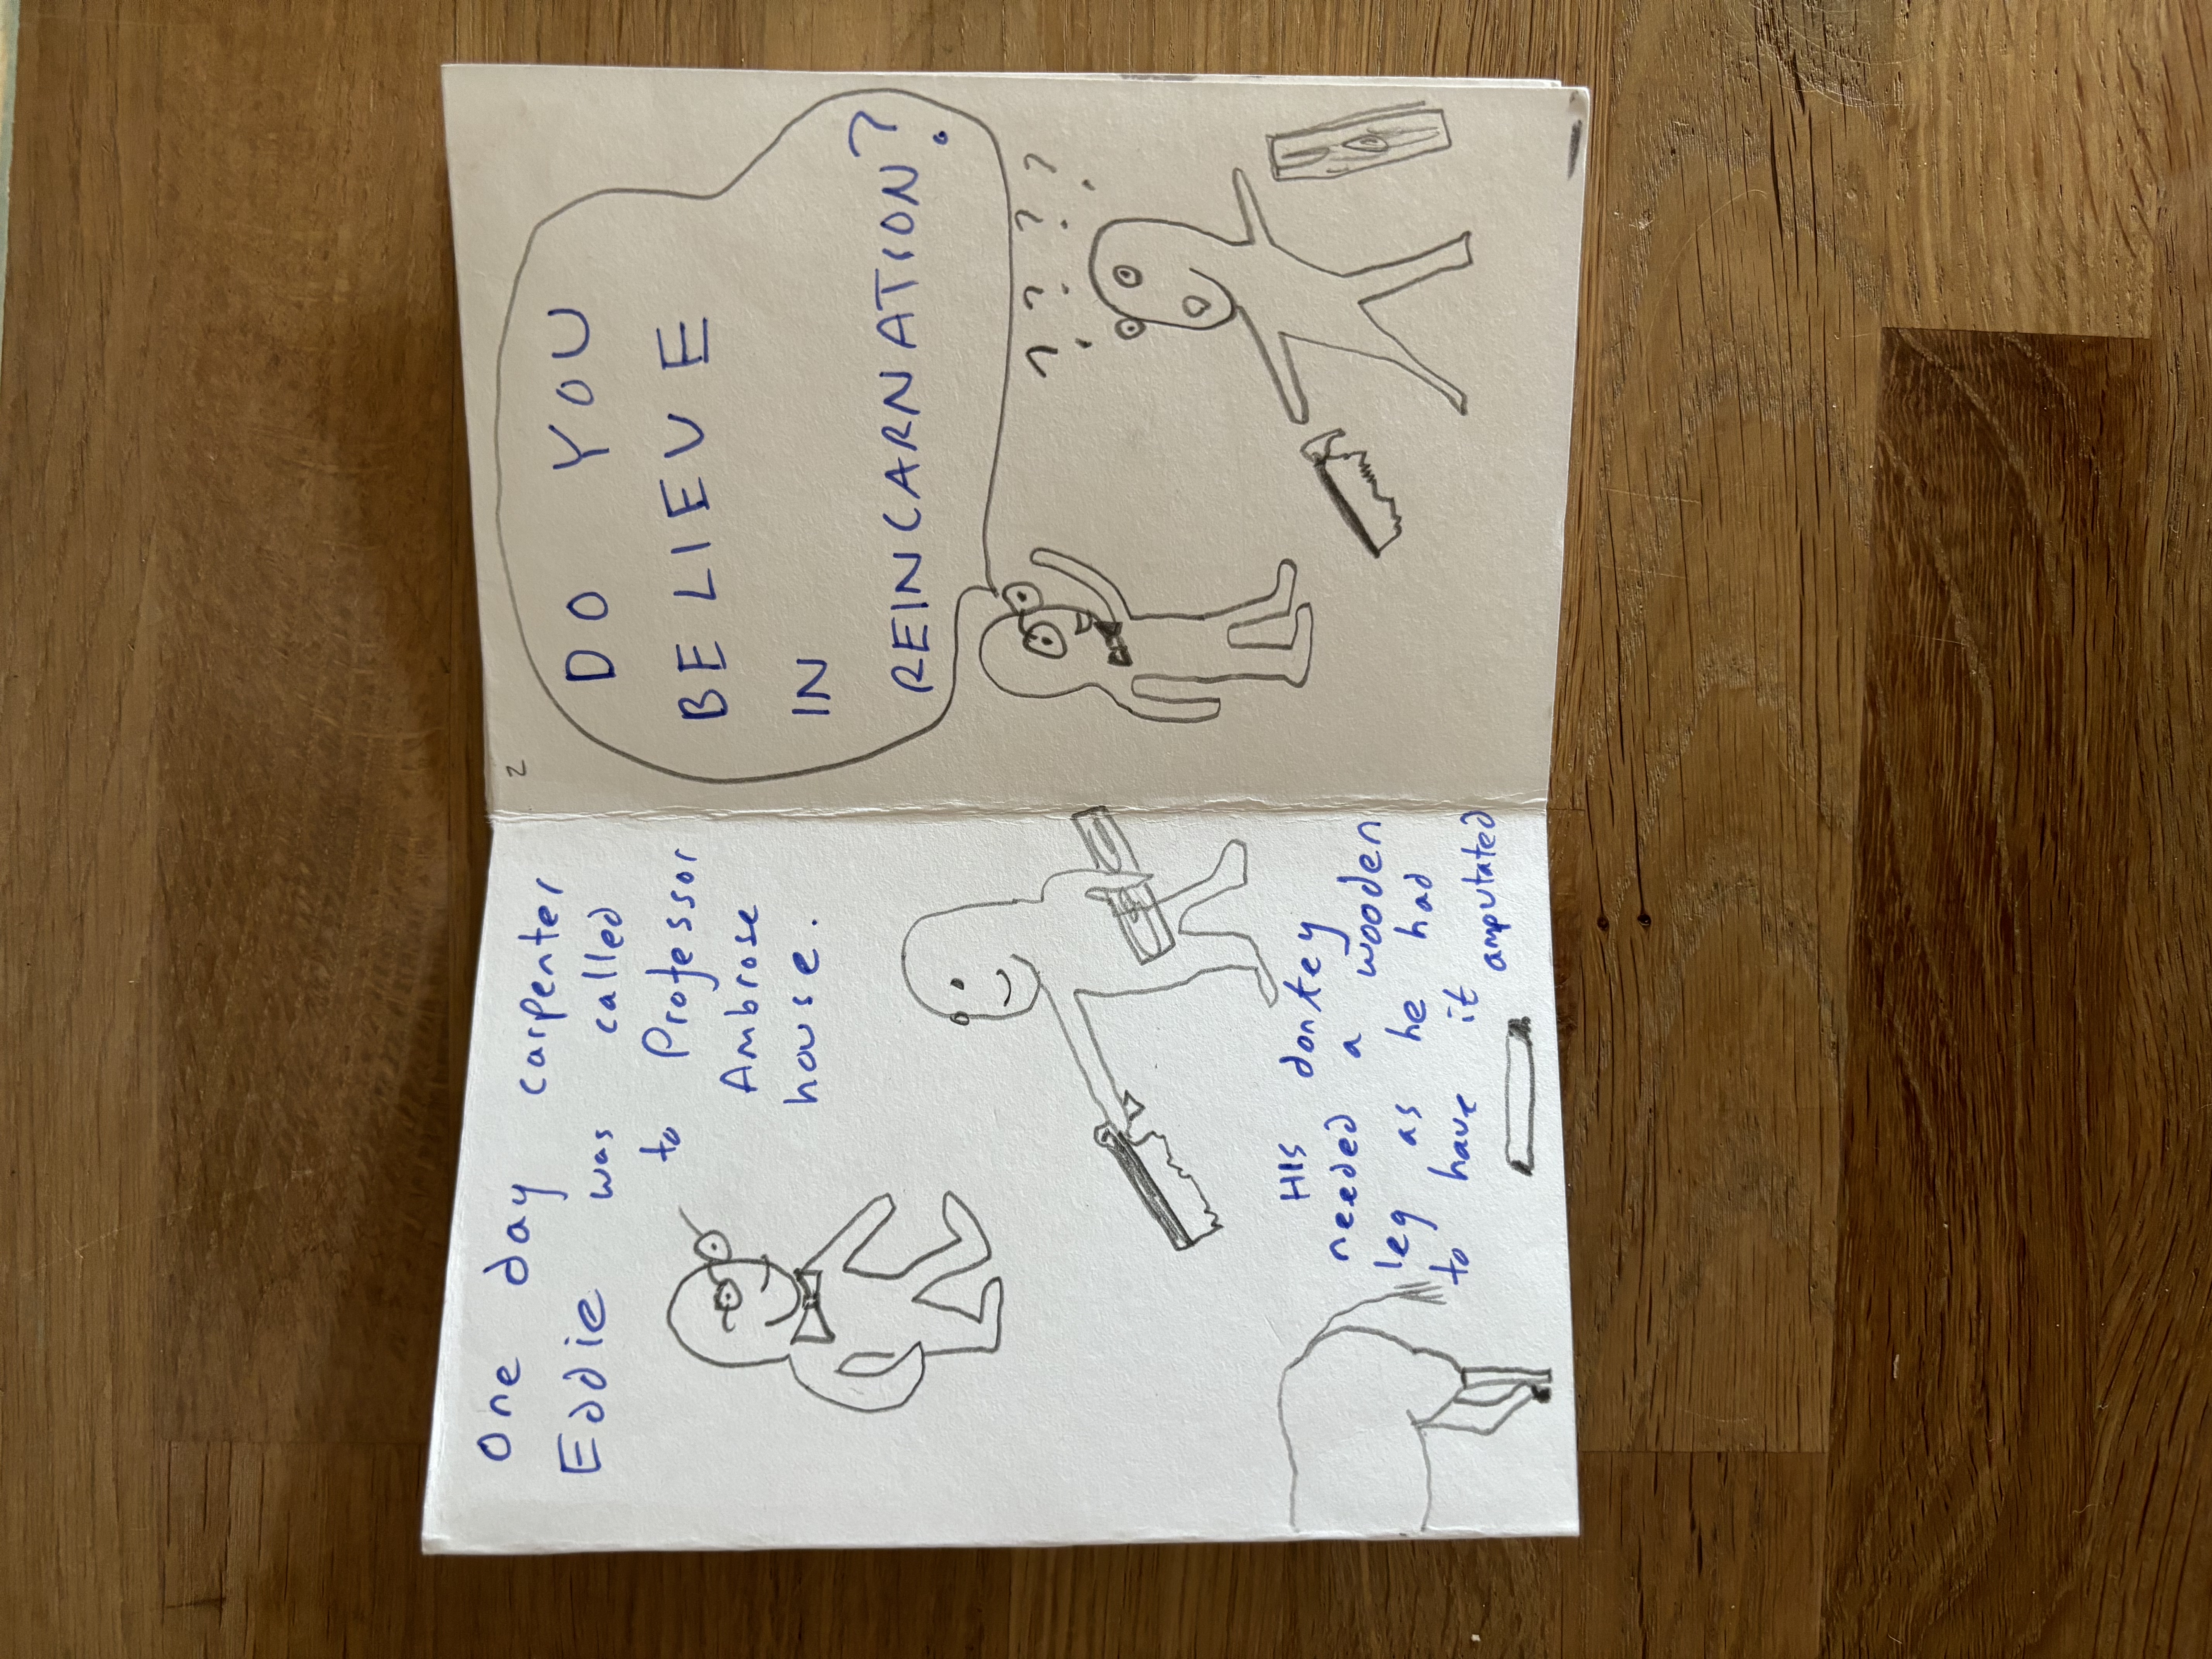 One day carpenter
Eddie was called
to Professor
Ambrose
house.
HIS donkey
needed a wooden
leg as he had
to have it amputated
2
DO YOU
BELIEVE
IN
REINCARNATION?
? ? ? ?